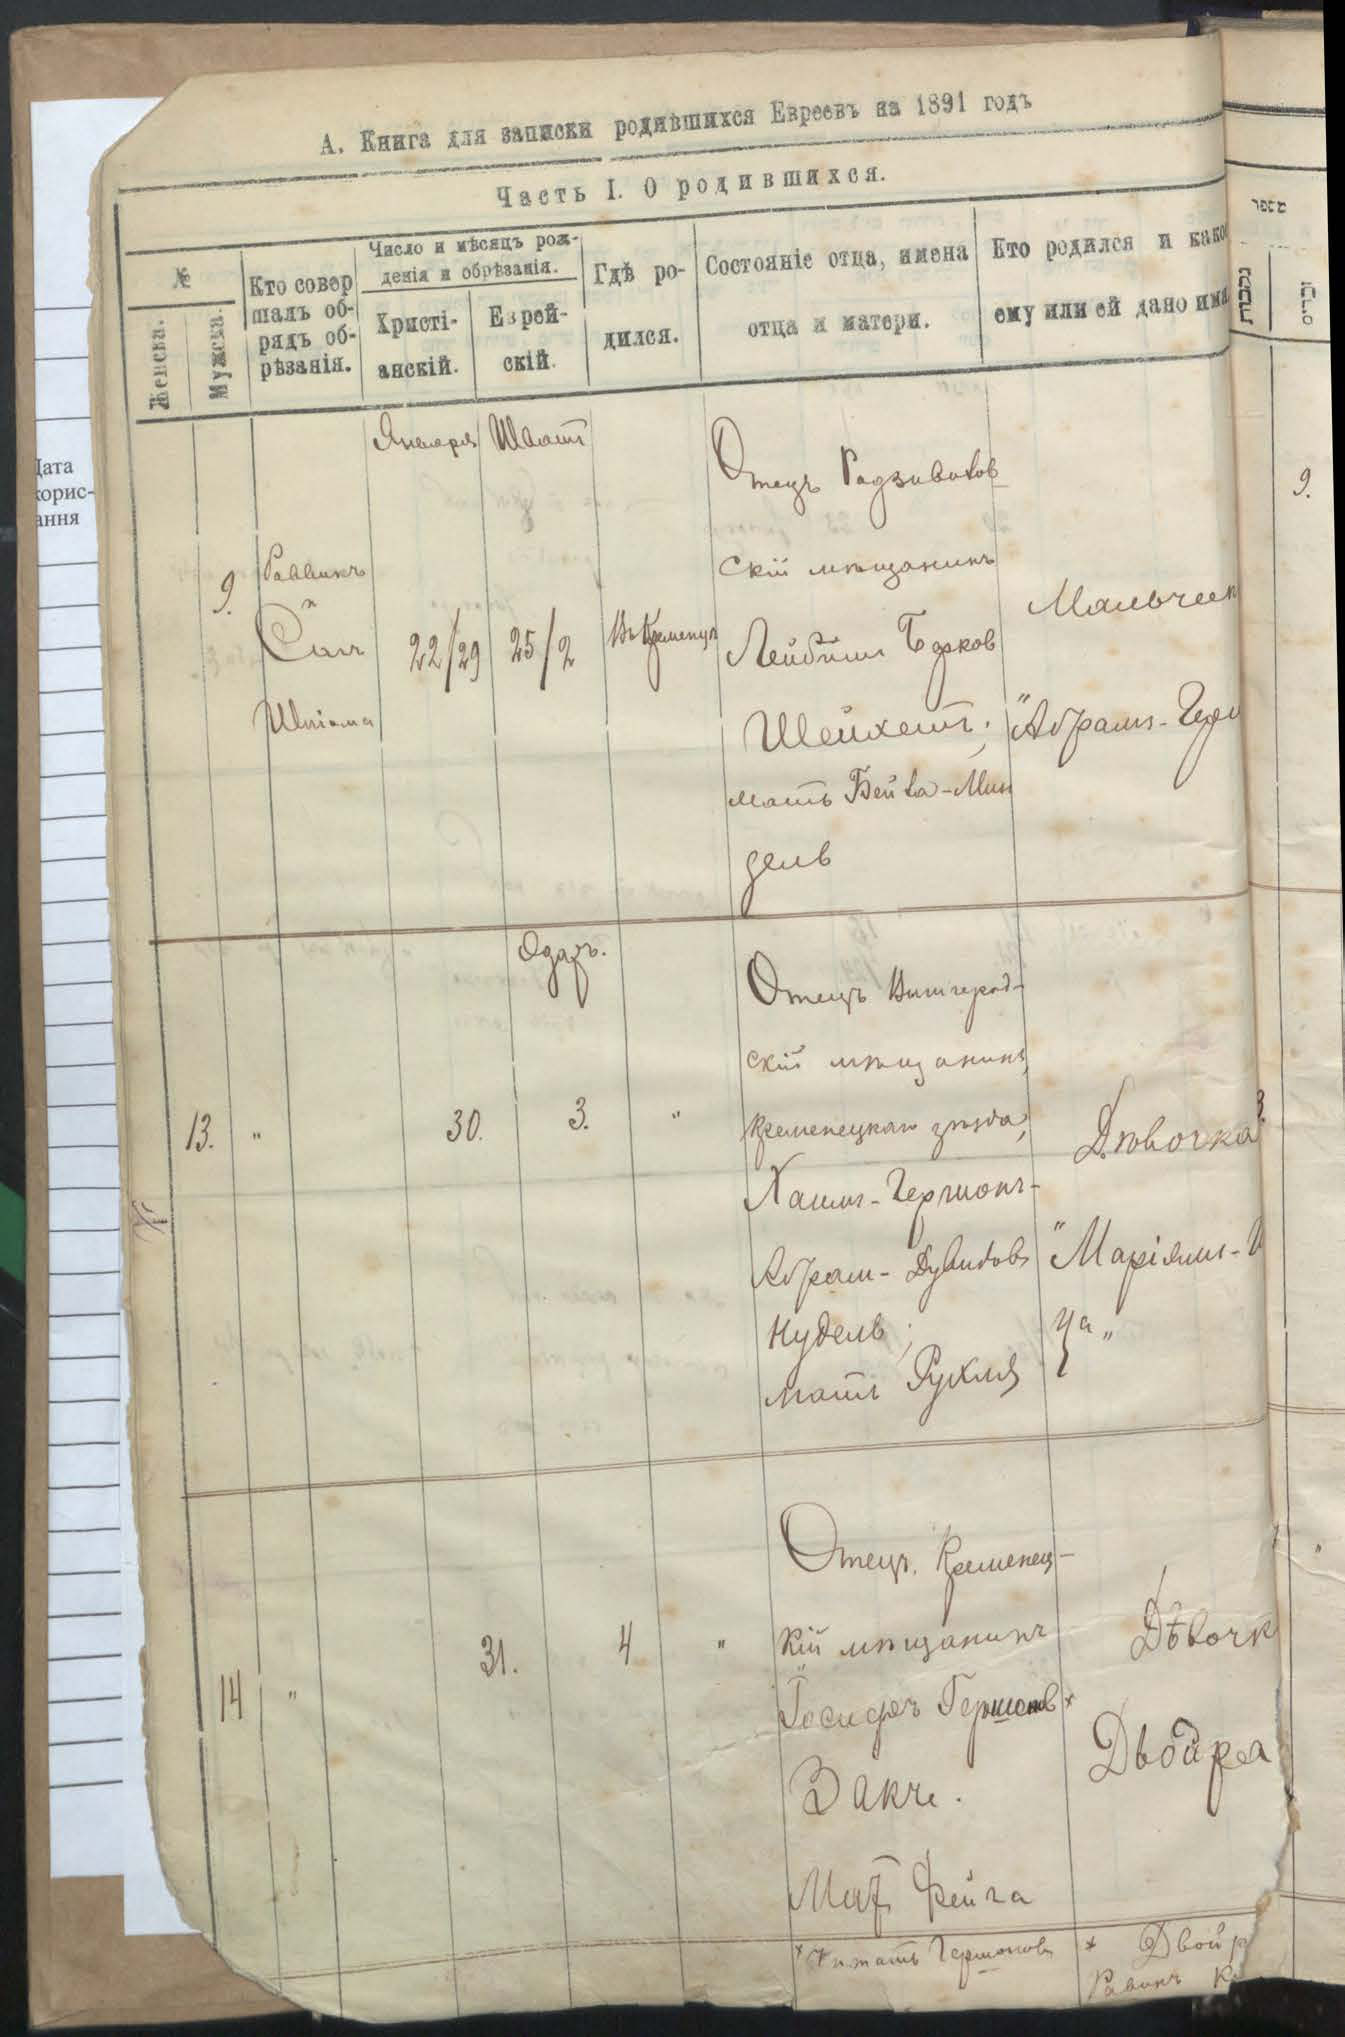 А. Книга для записки родившихся Евреевъ на 1891 годъ
Часть I. О родившихся.
№
Женска.
Мужска.
Кто совер
шалъ об-
рядъ об-
рѣзанія.
Число и мѣсяцъ рож-
денія и обрѣзанія.
Христі-
анскій.
Еврей-
скій.
Гдѣ ро-
дился.
Состояніе отца, имена
отца и матери.
Кто родился и како
ему или ей дано имя
מספר
נקבות
זכרים
Дата
корис-
ання
Января
Шватъ
9.
Раввинъ
22/29
25/2
Въ Кременцѣ
Отецъ Радзивилов
скій мѣщанинъ
Лейбишъ Борков
Шейхетъ;
мать Бейла-Мин
дель
Мальчик
"Абрамъ-
9.
Одаръ.
13.
"
30.
3.
"
Отецъ Вышгород-
скій мѣщанинъ,
Кременецкаго уѣзда,
Хаимъ-Гершонъ-
Абрам-
Нудель;
мать Рухля
Дѣвочка
"Маріямъ-
ца"
14
"
31.
4
"
Отецъ Кременец-
кій мѣщанинъ
Іосифъ Гершонов*
Закъ.
Мать Фейга
Дѣвочк
Двойра
* читать Гершоновъ
* Двойр
Равинъ